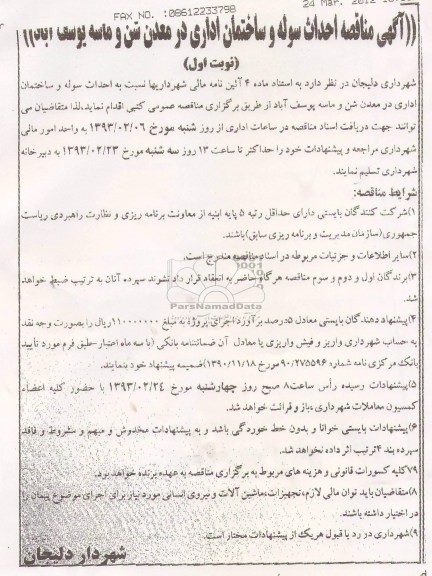 FAX NO. :08612233798
24 Mar. 2012
((آگهی مناقصه احداث سوله و ساختمان اداری در معدن شن و ماسه یوسف آباد))
(نوبت اول)
شهرداری دلیجان در نظر دارد به استناد ماده ۴ آئین نامه مالی شهرداریها نسبت به احداث سوله و ساختمان
اداری در معدن شن و ماسه یوسف آباد از طریق برگزاری مناقصه عمومی کتبی اقدام نماید،لذا متقاضیان می
توانند جهت دریافت اسناد مناقصه در ساعات اداری از روز شنبه مورخ ۱۳۹۳/۰۲/۰۶ به واحد امور مالی
شهرداری مراجعه و پیشنهادات خود را حداکثر تا ساعت ۱۳ روز سه شنبه مورخ ۱۳۹۳/۰۲/۲۳ به دبیرخانه
شهرداری تسلیم نمایند.
شرایط مناقصه:
۱)شرکت کنندگان بایستی دارای حداقل رتبه ۵ پایه ابنیه از معاونت برنامه ریزی و نظارت راهبردی ریاست
جمهوری(سازمان مدیریت و برنامه ریزی سابق)باشند.
۲)سایر اطلاعات و جزئیات مربوطه در اسناد مناقصه مندرج است.
۳)برندگان اول و دوم و سوم مناقصه هرگاه حاضر به انعقاد قرار داد نشوند سپرده آنان به ترتیب ضبط خواهد
شد.
ParsNamadData
۴)پیشنهاد دهندگان بایستی معادل ۵درصد برآورد اجرای پروژه به مبلغ ۱۱۰۰۰۰۰۰۰ریال را بصورت وجه نقد
به حساب شهرداری واریز و فیش واریزی یا معادل آن ضمانتنامه بانکی (با سه ماه اعتبار -طبق فرم مورد تأیید
بانک مرکزی نامه شماره ۹۰/۲۷۵۵۹۶مورخ ۱۳۹۰/۱۱/۱۸)ضمیمه پیشنهاد خود بنمایند.
۵)پیشنهادات رسیده رأس ساعت۸ صبح روز چهارشنبه مورخ ۱۳۹۳/۰۲/۲۴ با حضور کلیه اعضاء
کمسیون معاملات شهرداری ،باز و قرائت خواهد شد.
۶)پیشنهادات بایستی خوانا و بدون خط خوردگی باشد و به پیشنهادات مخدوش و مبهم و مشروط و فاقد
سپرده بند ۴ترتیب اثر داده نخواهد شد.
۷)کلیه کسورات قانونی و هزینه های مربوط به برگزاری مناقصه به عهده برنده خواهد بود.
۸)متقاضیان باید توان مالی لازم،تجهیزات،ماشین آلات و نیروی انسانی مورد نیاز برای اجرای موضوع پیمان را
در اختیار داشته باشند.
۹)شهرداری در رد یا قبول هریک از پیشنهادات مختار است.
شهردار دلیجان